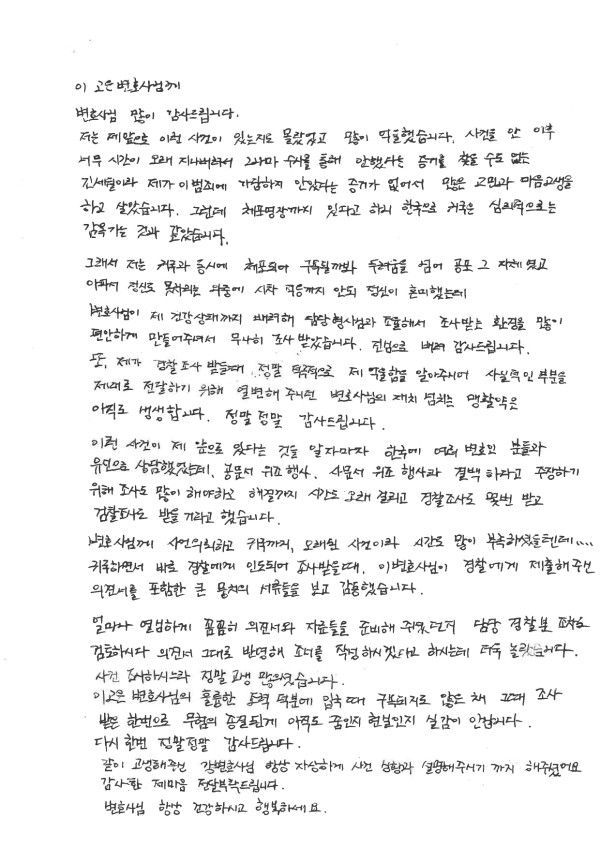 이 고은변호사님께
변호사님 많이 감사드립니다.
저는 제앞으로 이런 사건이 있는지도 몰랐었고 많이 억울했습니다. 사건을 안 이후
너무 시간이 오래 지나버려서 그나마 수사를 통해 안했다는 증거를 찾을 수도 없는
진세월이라 제가 이범죄에 가담하지 안았다는 증거가 없어서 많은 고민과 마음고생을
하고 살았습니다. 그런데 체포영장까지 있다고 하니 한국으로 귀국은 심리적으로는
감옥가는 것과 같았습니다.
그래서 저는 귀국과 동시에 체포되어 구속될까봐 두려움을 넘어 공포 그 자체였고
아파서 정신도 못차리는 와중에 시차 적응까지 안되 정신이 혼미했는데
변호사님이 제 건강상태까지 배려해 담당형사님과 조율해서 조사받는 환경을 많이
편안하게 만들어주셔서 무사히 조사 받았습니다. 진심으로 배려 감사드립니다.
또, 제가 경찰조사 받을때 정말 적극적으로 제 억울함을 알아주시어 사실적인 부분을
제대로 전달하기 위해 열변해 주시던 변호사님의 재치 넘치는 맹활약은
아직도 생생합니다. 정말정말 감사드립니다.
이런 사건이 제 앞으로 있다는 것을 알자마자 한국에 여러 변호인 분들과
유선으로 상담했었는데, 공문서 위조 행사, 사문서 위조 행사라 결백 하다고 주장하기
위해 조사도 많이 해야하고 해결까지 시간도 오래 걸리고 경찰조사도 몇번 받고
검찰조사도 받을 거라고 했습니다.
변호사님께 사건의뢰하고 귀국까지, 오래된 사건이라 시간도 많이 부족하셨을텐데....
귀국하면서 바로 경찰에게 인도되어 조사받을때, 이변호사님이 경찰에게 제출해주신
의견서를 포함한 큰 뭉치의 서류들을 보고 감동했습니다.
얼마나 열심히게 꼼꼼히 의견서와 자료들을 준비해 주셨던지 담당 경찰분 조차도
검토하시다 의견서 그대로 반영해 조서를 작성하시겠다고 하시는데 더욱 놀랐습니다.
사건 조사하시느라 정말 고생 많으셨습니다.
이고은 변호사님의 훌륭한 능력 덕분에 입국때 구속되지도 않은 채 그때 조사
받은 한번으로 무혐의 종결된게 아직도 꿈인지 현실인지 실감이 안납니다.
다시 한번 정말정말 감사드립니다.
같이 고생해주신 강변호사님 항상 자상하게 사건 상황과 설명해주시기 까지 해주셨어요
감사한 제마음 전달부탁드립니다.
변호사님 항상 건강하시고 행복하세요.